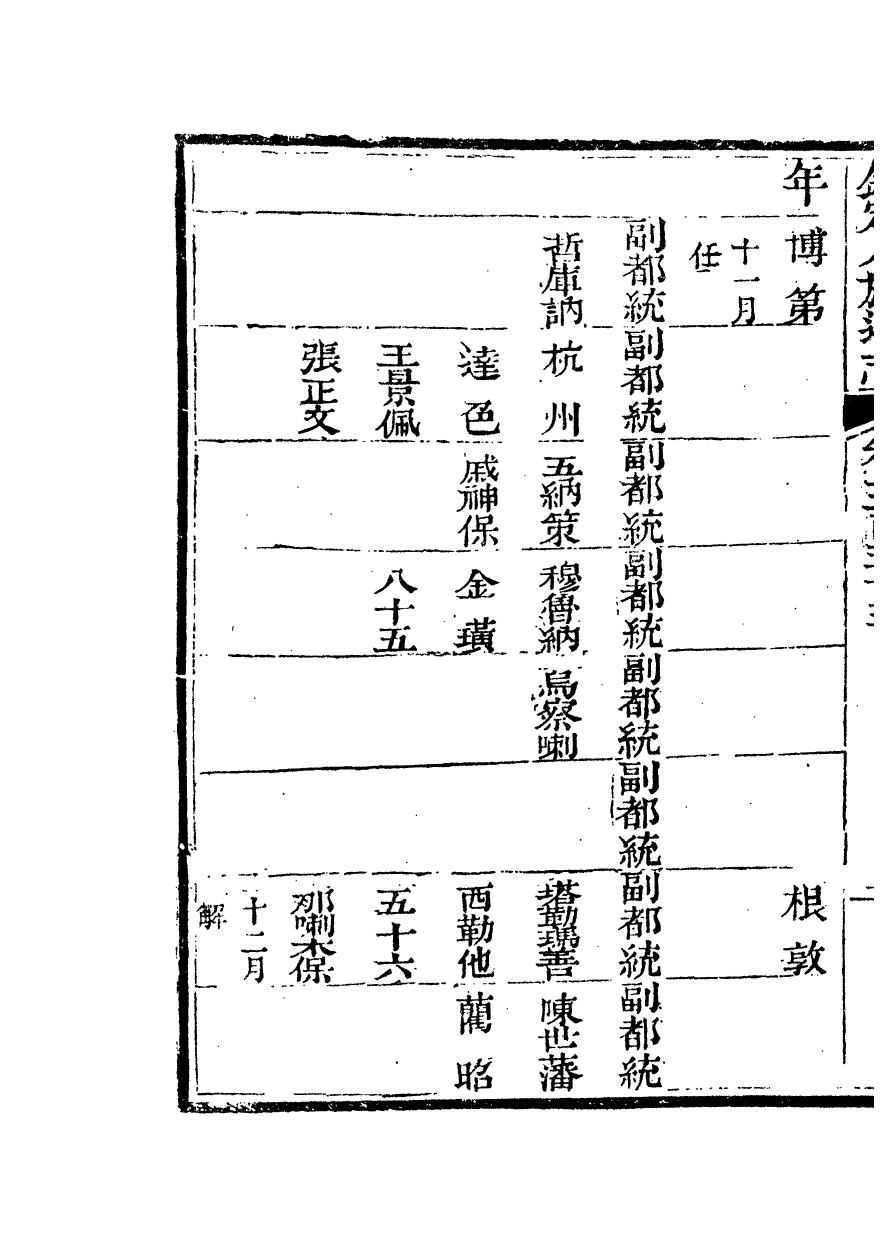 年 博第 根敦
十一月
任
副都統 副都統 副都統 副都統 副都統 副都統 副都統 副都統
哲庫訥 杭州 五納策 穆魯納 烏察喇 陳世藩
達色 戚神保 金璜 西勒他 藺昭
王景佩 八十五 五十六
張正文 那喇木保
十二月
解